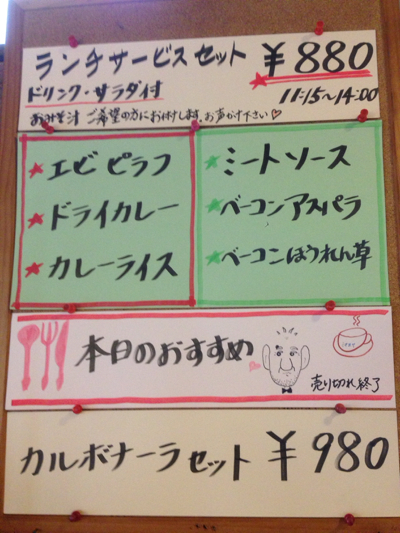 ランチサービスセット ¥880
ドリンク・サラダ付 11:15~14:00
おみそ汁 ご希望の方にお付けします。お声がけ下さい♡
★エビピラフ
★ドライカレー
★カレーライス
★ミートソース
★ベーコンアスパラ
★ベーコンほうれん草
本日のおすすめ
売り切れ終了
カルボナーラセット ¥980